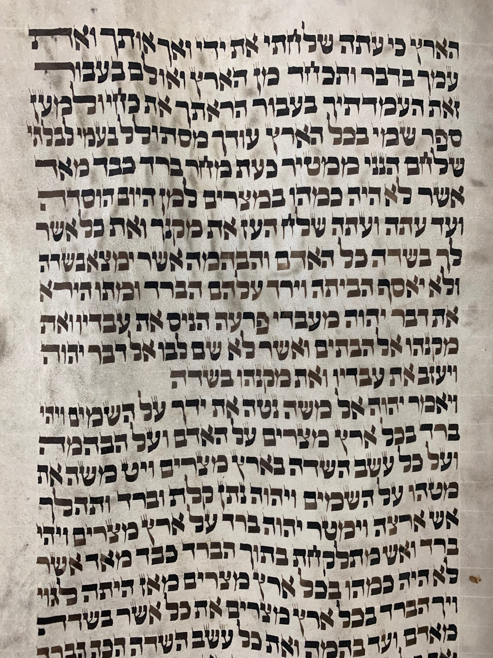 הארץ כי עתה שלחתי את ידי ואך אותך ואת
עמך בדבר ותכחד מן הארץ ואולם בעבור
זאת העמדתיך בעבור הראתך את כחי ולמען
ספר שמי בכל הארץ עודך מסתולל בעמי לבלתי
שלחם הנני ממטיר כעת מחר ברד כבד מאד
אשר לא היה כמהו במצרים למן היום הוסדה
ועד עתה ועתה שלח העז את מקנך ואת כל אשר
לך בשדה כל האדם והבהמה אשר ימצא בשדה
ולא יאסף הביתה וירד עלהם הברד ומתו הירא
את דבר יהוה מעבדי פרעה הניס את עבדיו ואת
מקנהו אל הבתים ואשר לא שם לבו אל דבר יהוה
ויעזב את עבדיו ואת מקנהו בשדה
ויאמר יהוה אל משה נטה את ידך על השמים ויהי
ברד בכל ארץ מצרים על האדם ועל הבהמה
ועל כל עשב השדה בארץ מצרים ויט משה את
מטהו על השמים ויהוה נתן קלת וברד ותהלך
אש ארצה וימטר יהוה ברד על ארץ מצרים ויהי
ברד ואש מתלקחת בתוך הברד כבד מאד אשר
לא היה כמהו בכל ארץ מצרים מאז היתה לגוי
ויך הברד בכל ארץ מצרים את כל אשר בשדה
מאדם ועד בהמה ואת כל עשב השדה הכה הברד